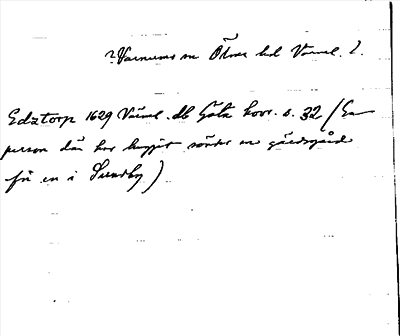 ? Varnums sn Ölme hd Värml. ?.
Edztorp 1629 Värml. db Göta hovr. s. 32 (En
person där har huggit sönder en gärdsgård
för en i Sundby)